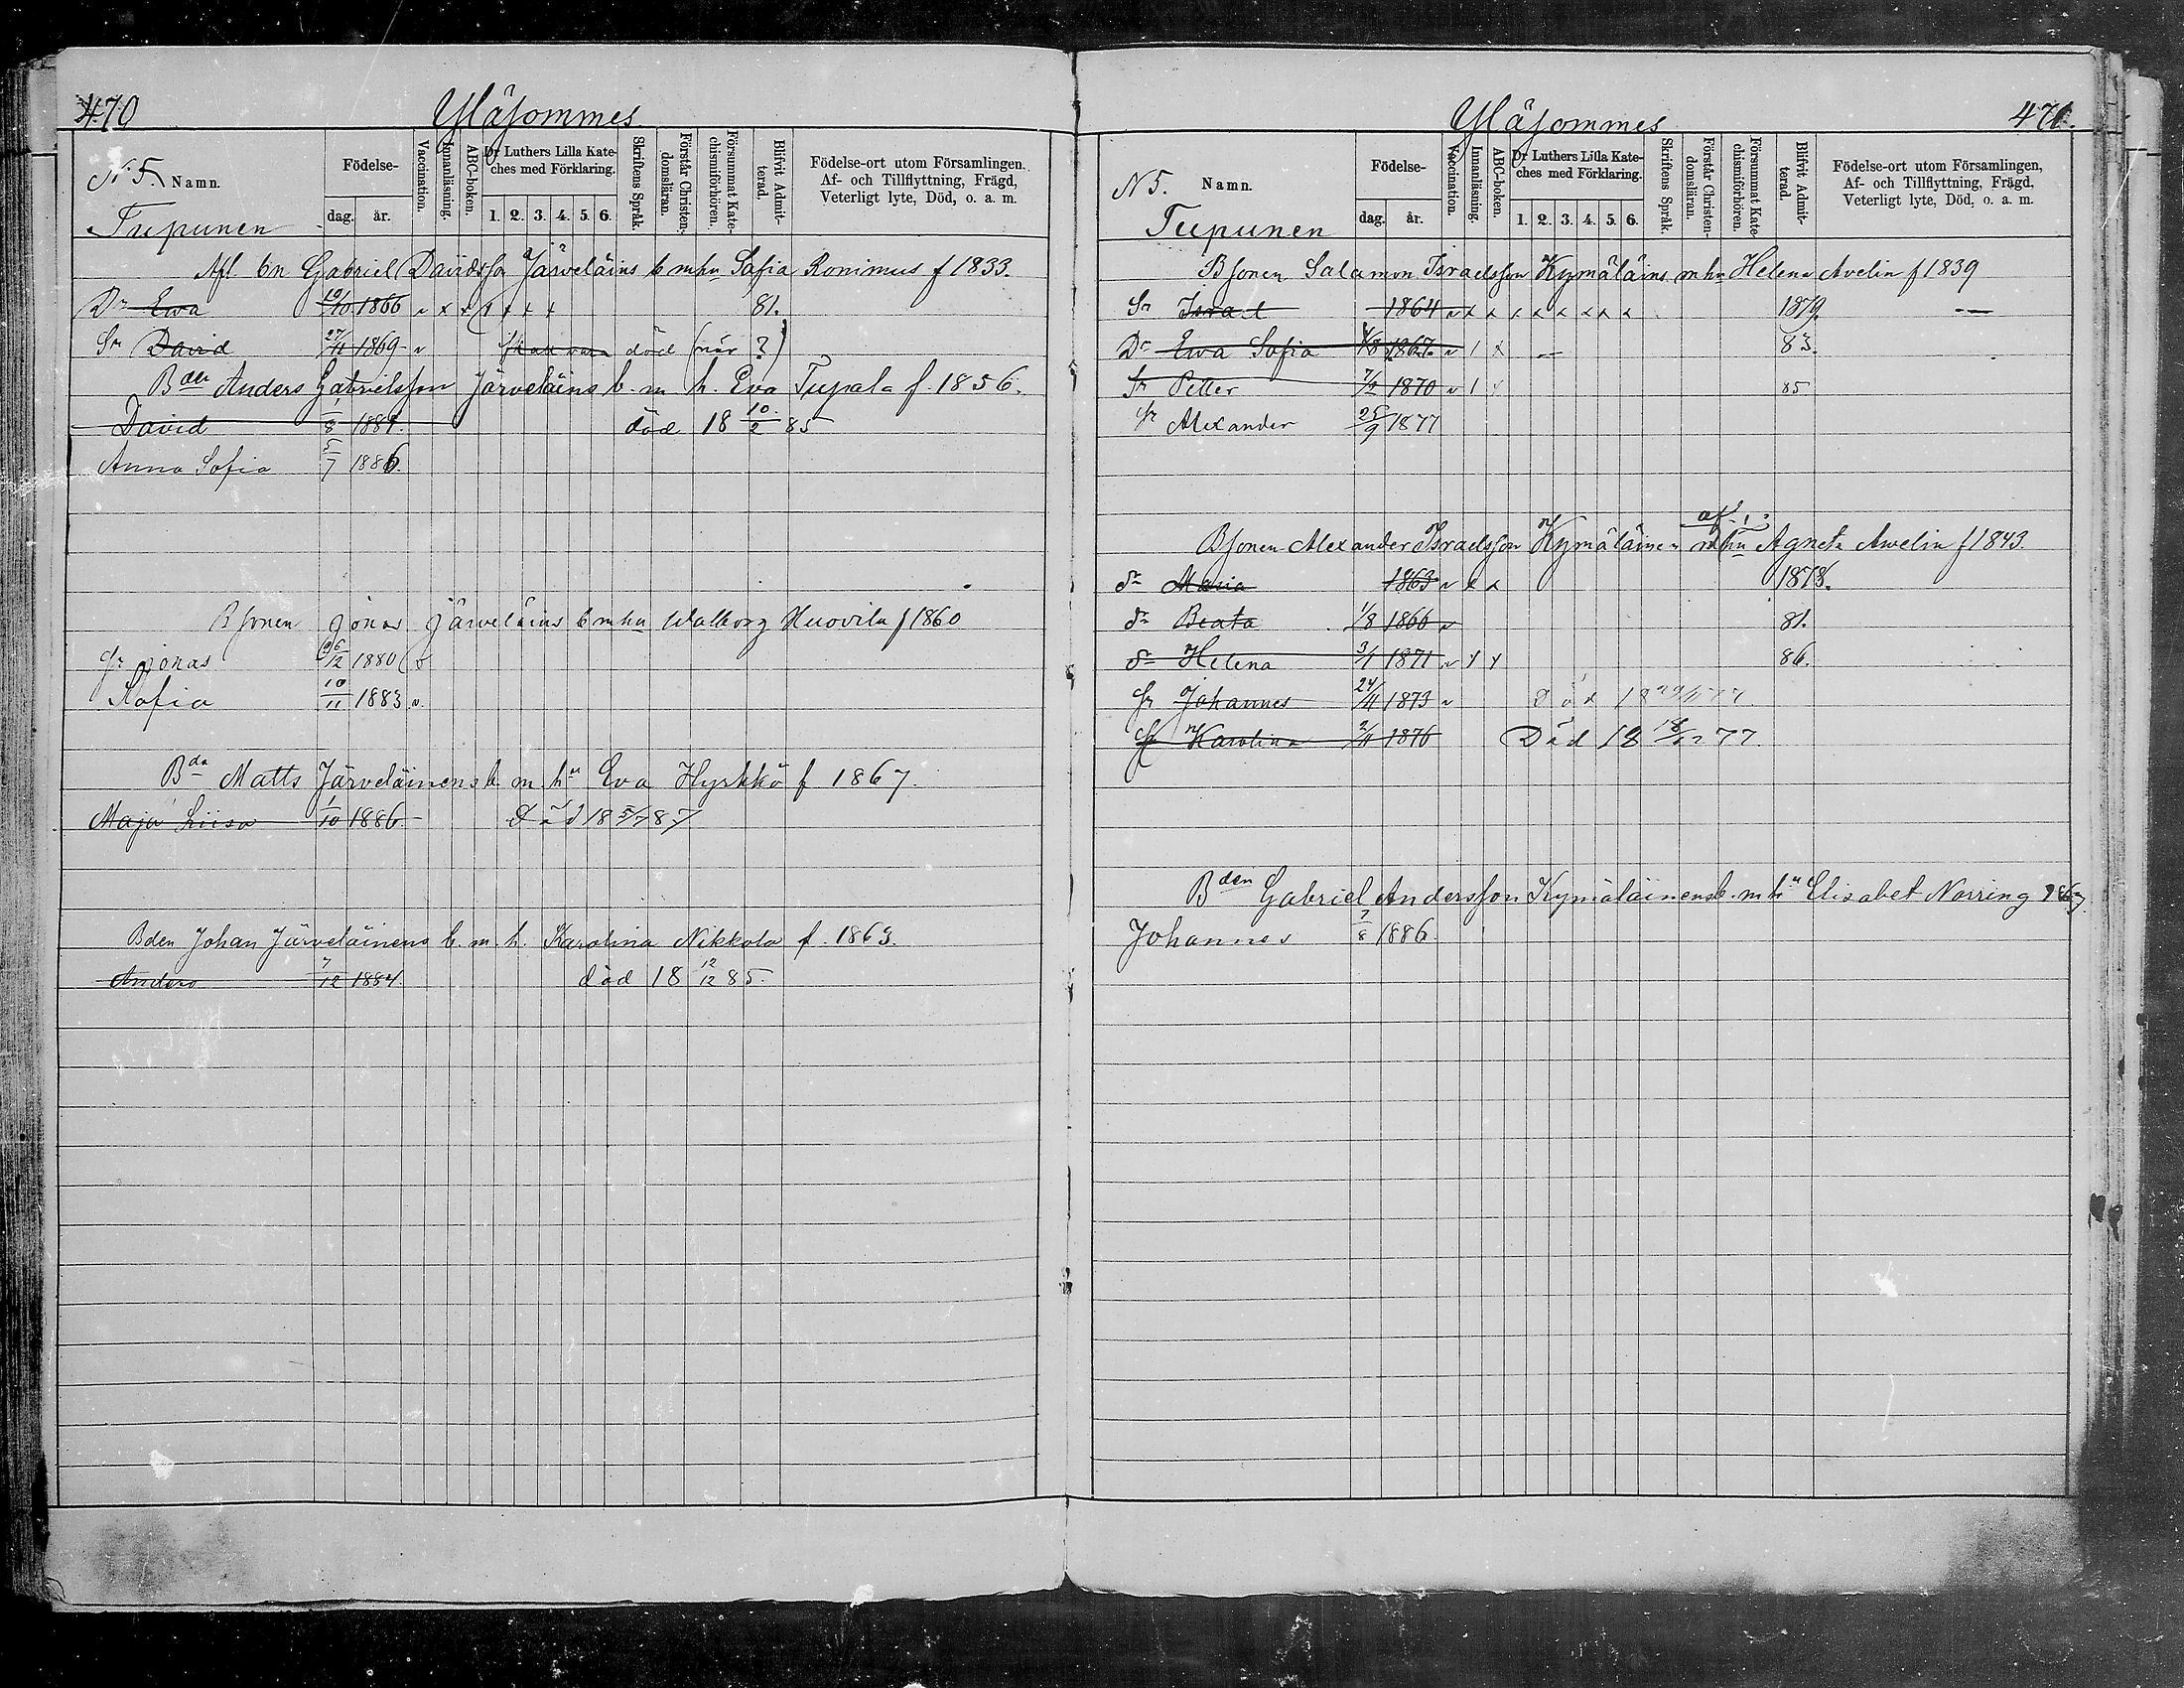 470
Yläjommes
N 5. Namn.
Tupunen
Födelse-
dag. år.
Vaccination.
Innanläsning.
ABC-boken.
Dr Luthers Lilla Kate-
ches med Förklaring.
1. 2. 3. 4. 5. 6.
Skriftens Språk.
Förstår Christen-
domsläran.
Försummat Kate-
chismiförhören.
Blifvit Admit-
terad.
Födelse-ort utom Församlingen.
Af- och Tillflyttning, Frägd,
Veterligt lyte, Död, o. a. m.
Afl bn Gabriel Davidsson Järveläins b mhu Sofia Ronimus f 1833.
Dr Ewa 10/10 1866 v x x 1 x x x 81.
Sr David 27/11 1869 v skall vara död (när ?)
Bden Anders Gabrielsson Järveläins b. m h. Eva Tupala f. 1856.
David 1/8 1884. död 18 10/2 85
Anna Sofia 5/7 1886.
Bsonen Jonas Järveläins b mhu Walborg Huovila f 1860
Sr Jonas 26/12 1880 v
Sofia 10/11 1883 v.
Bda Matts Järveläinens b. m. hu Eva Hyrkkö f 1867.
Maja Liisa 1/10 1886. Död 18 5/7 87
Bden Johan Järveläinens b. m. h. Karolina Nikkola f. 1863.
Anders 7/12 1884. död 18 12/12 85.
Yläjommes
471.
N 5. Namn.
Tupunen
Födelse-
dag. år.
Vaccination.
Innanläsning.
ABC-boken.
Dr Luthers Lilla Kate-
ches med Förklaring.
1. 2. 3. 4. 5. 6.
Skriftens Språk.
Förstår Christen-
domsläran.
Försummat Kate-
chismiförhören.
Blifvit Admit-
terad.
Födelse-ort utom Församlingen,
Af- och Tillflyttning, Frägd,
Veterligt lyte, Död, o. a. m.
Bsonen Salamon Israelsson Kymäläins mhu Helena Avelin f 1839
Sr Israel 1864 v x x x x x x x x 1879. —
Dr Ewa Sofia 4/8 1867. v 1 x — 83.
Sr Petter 7/2 1870 v 1 x 85
Sr Alexander 25/9 1877
Bsonen Alexander Israelsson Kymäläinen mhu Agneta Awelin f 1843.
dr Maria 1863 v x x 1878.
dr Beata 1/8 1866 v 81.
dr Helena 3/1 1871 v x x 86.
Sr Johannes 24/11 1873 v Död 18 77.
Karolina 2/11 1876 Död 18 18/12 77.
Bden Gabriel Andersson Kymäläinens b. m hu Elisabet Norring 1867
Johannes 7/8 1886.